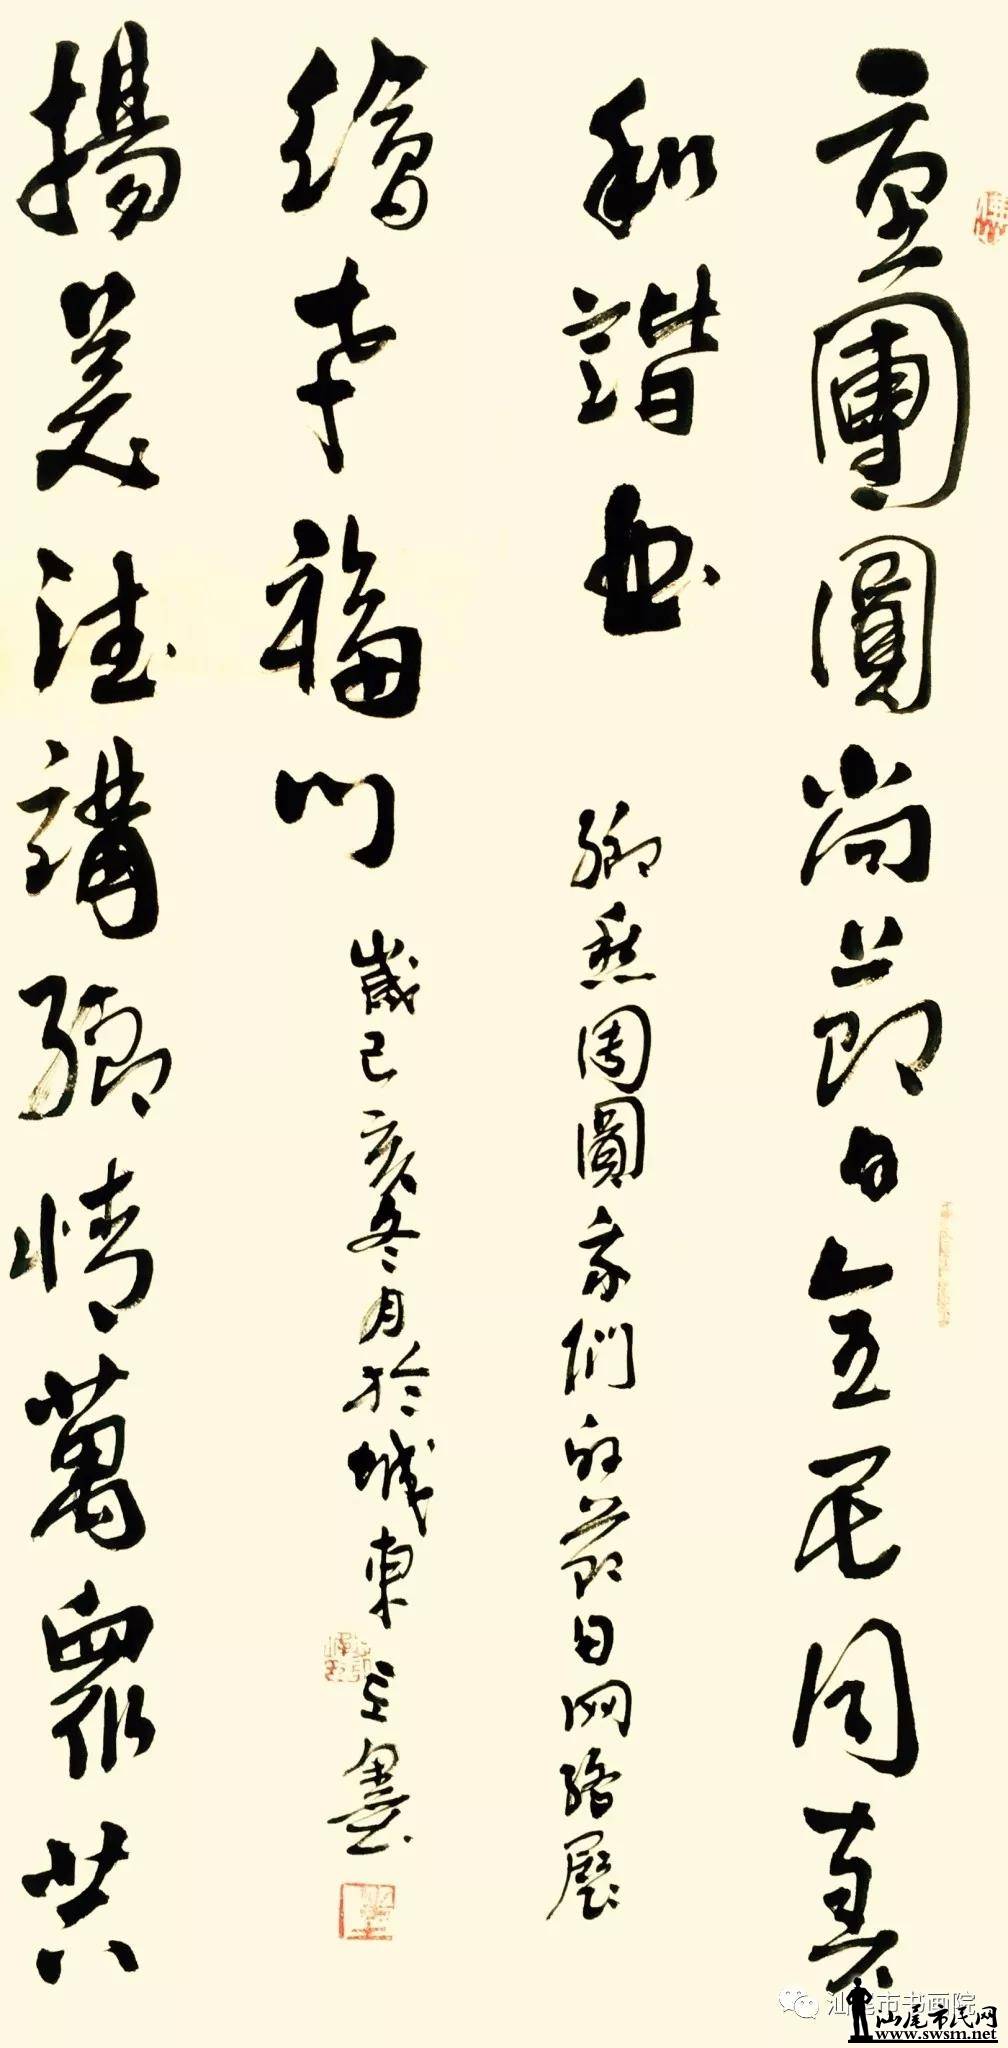 重團圓尚節日全民同奏
和諧曲
鄉愁團圓我們的節日网絡展
揚美德講鄉情萬眾共
繪幸福門
歲己亥冬月於城東
汕尾市书画院
汕尾市民网
www.swsm.net